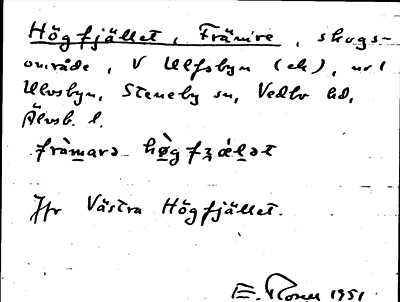 Högfjället, Främre, skogs-
område, V Ulfsbyn (ek),
Ulvsbyn, Steneby sn, Vedbo hd,
Älvsb. l.
fràmarə hø̀gfʒǽlət
Jfr Västra Högfjället.
E. 1951